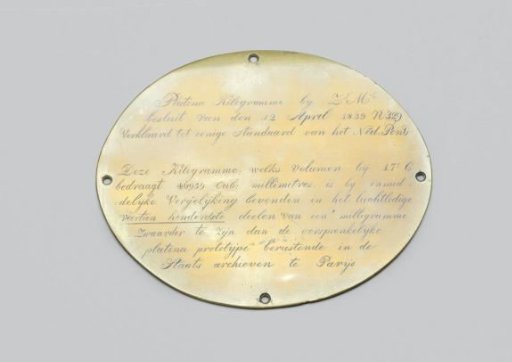 Platina Kilogramme by Z. M.
besluit van den 12 April 1839 N 39
Verklaard tot eenige Standaard van het Ned. Pond
Deze Kilogramme, welks volumen by 17° C
bedraagt 46939 Cub. millimetres is by onmid-
delyke Vergelyking bevonden in het luchtledige
veertien honderdste deelen van een milligramme
Zwaarder te zyn dan de oorspronkelyke
platina prototype berustende in de
Staats archieven te Parys